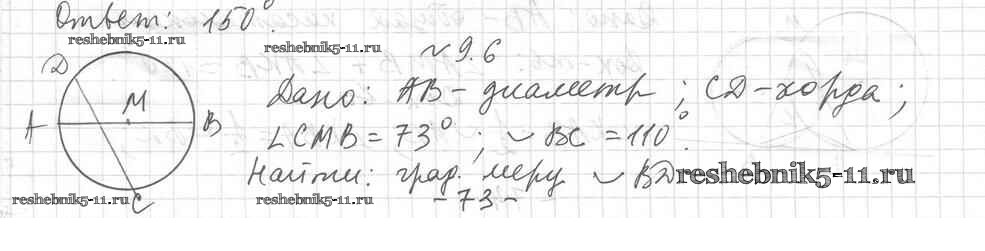 Ответ: 150°.
reshebnik5-11.ru reshebnik5-11.ru
~ 9.6
D M A B C
Дано: AB - диаметр; CD - хорда;
∠CMB = 73°; ◡ BC = 110°.
Найти: град. меру ◡ BD
reshebnik5-11.ru
reshebnik5-11.ru reshebnik5-11.ru
- 73 -